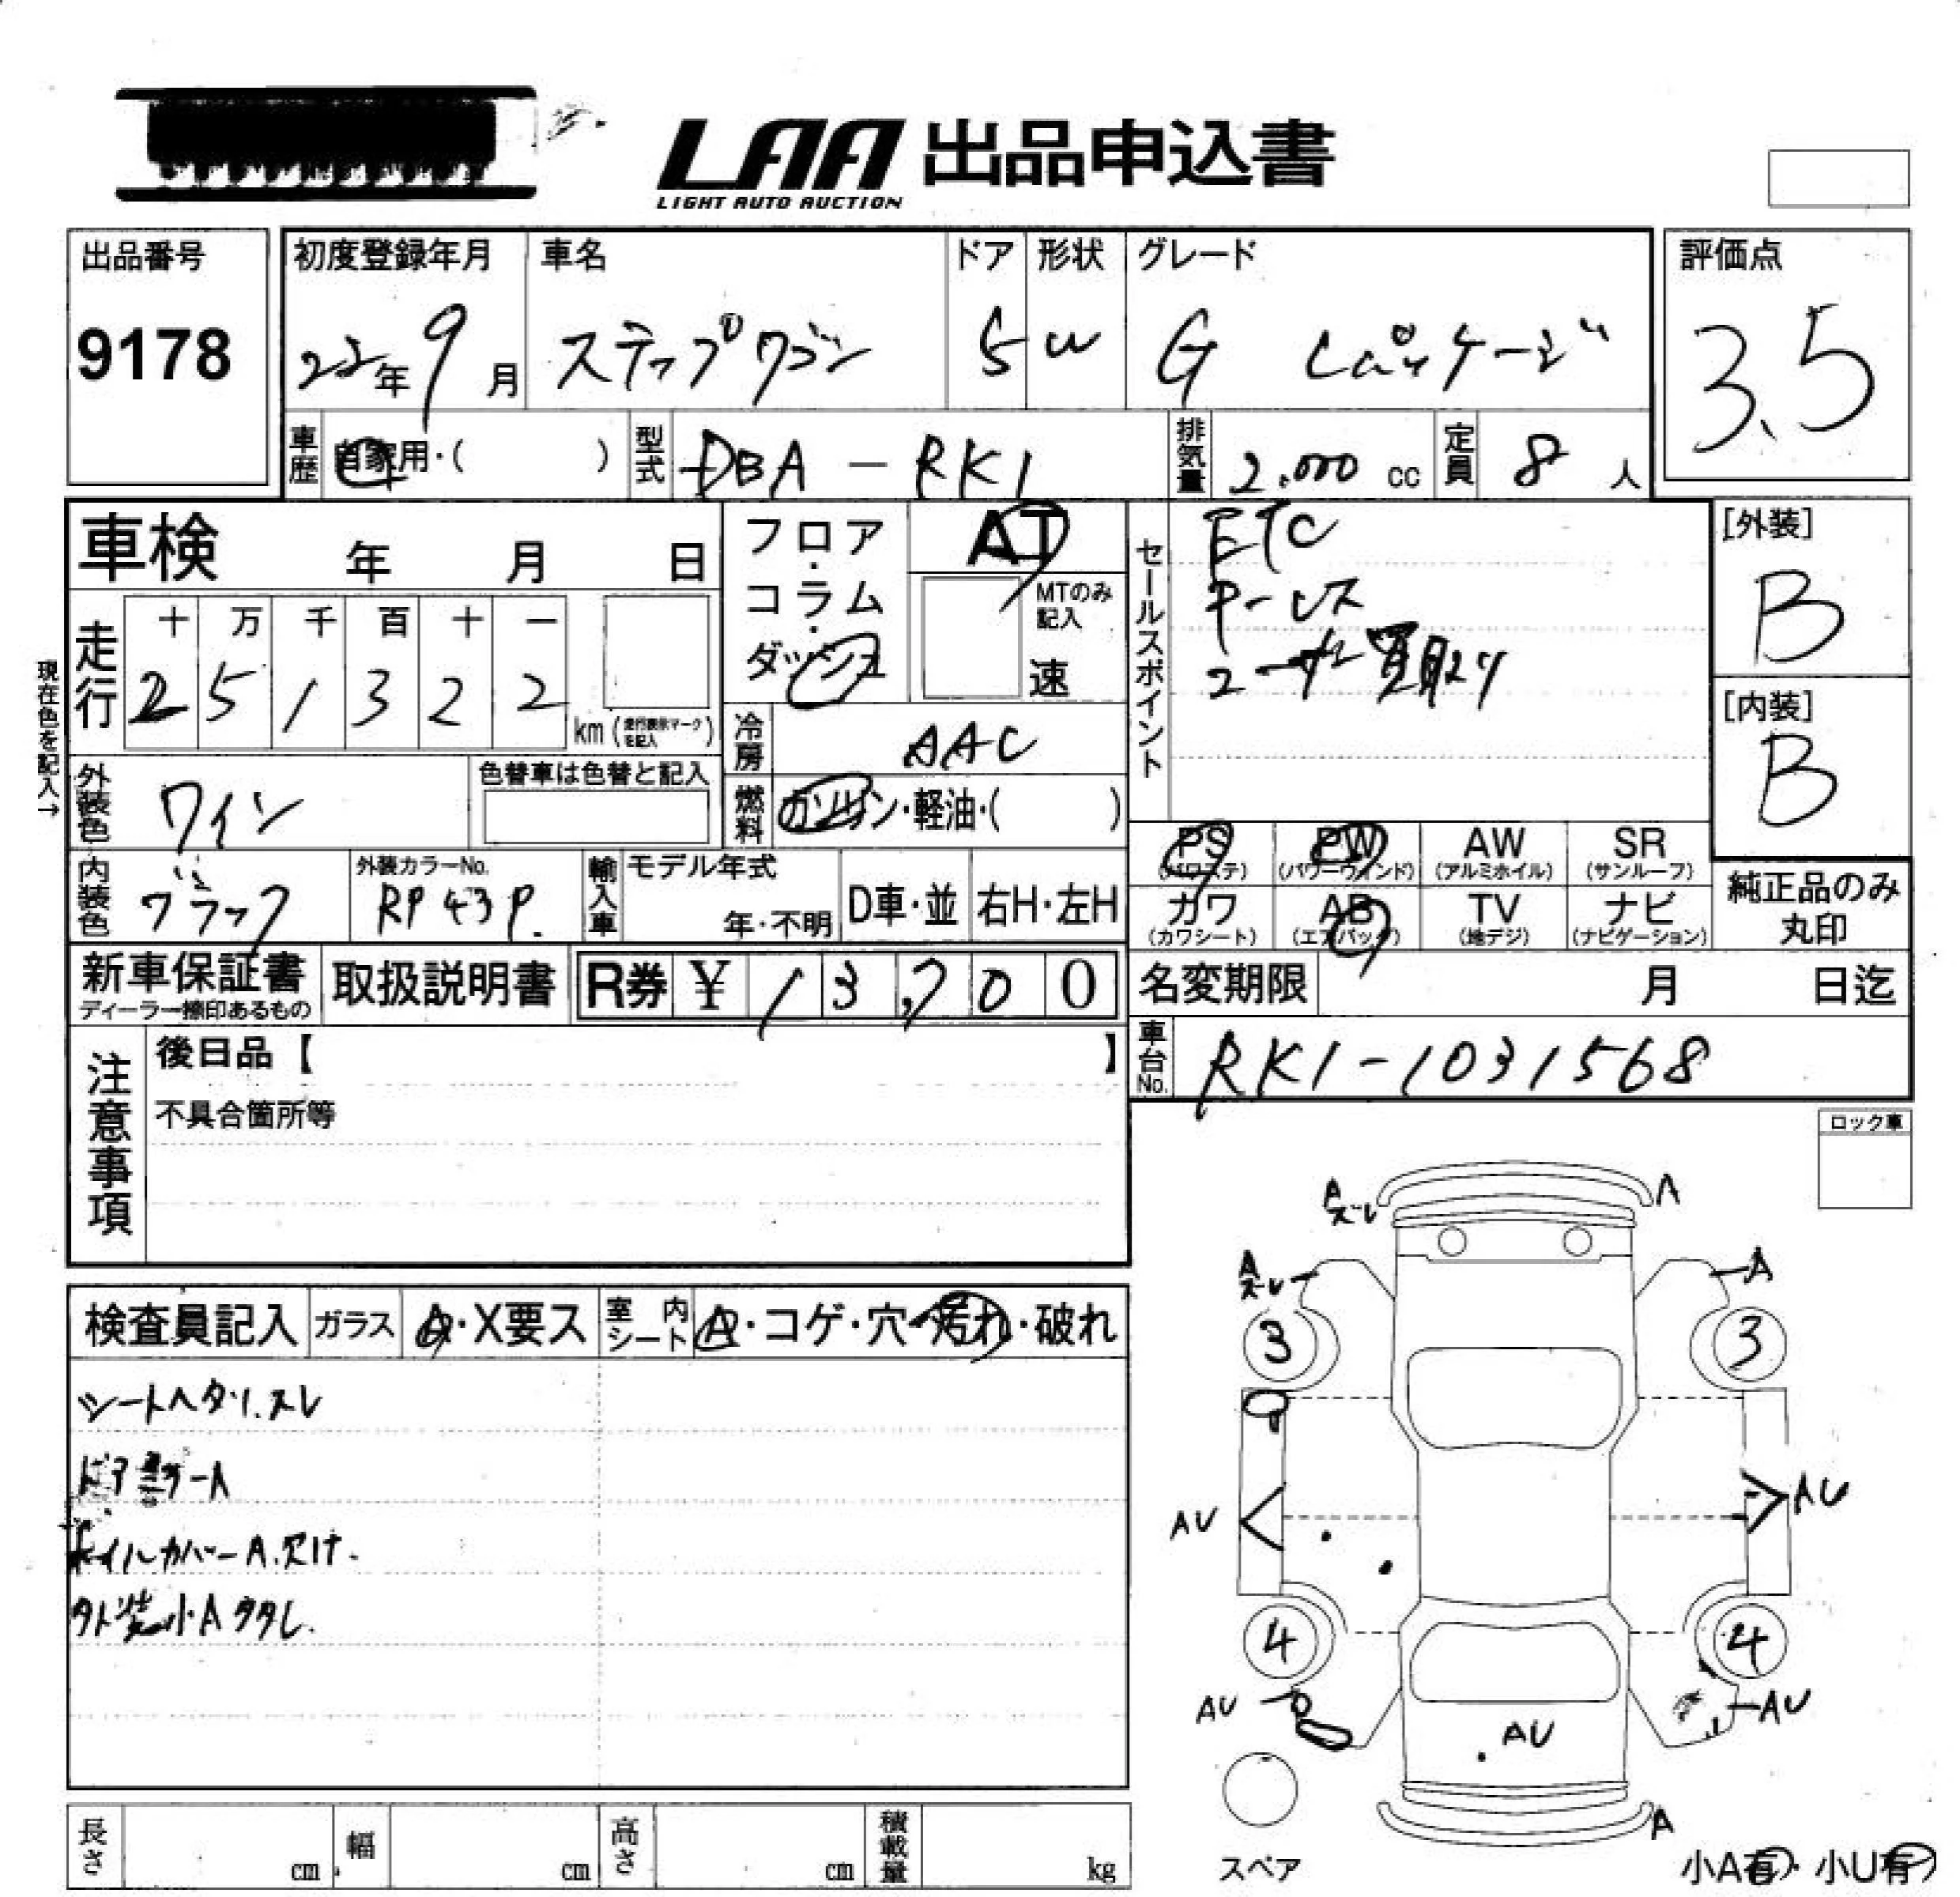 LAA 出品申込書
LIGHT AUTO AUCTION
出品番号
9178
初度登録年月
22年9月
車名
ステップワゴン
ドア
5
形状
W
グレード
G Lパッケージ
評価点
3.5
車歴
自家用・( )
型式
DBA-RK1
排気量
2.000 cc
定員
8 人
車検 年 月 日
フロア・コラム・ダッシュ
AT
MTのみ記入
速
セールスポイント
ETC
Pーレス
ユーザー買取り
[外装]
B
[内装]
B
現在色を記入→
走行
十 万 千 百 十 一
2 5 1 3 2 2
km (走行表示マークを記入)
冷房
AAC
外装色
ワイン
色替車は色替と記入
燃料
ガソリン・軽油・( )
PS (パワステ)
PW (パワーウインド)
AW (アルミホイル)
SR (サンルーフ)
カワ (カワシート)
AB (エアバック)
TV (地デジ)
ナビ (ナビゲーション)
純正品のみ丸印
内装色
ブラック
外装カラーNo.
RP43P.
輸入車
モデル年式
年・不明
D車・並
右H・左H
新車保証書
ディーラー捺印あるもの
取扱説明書
R券 ¥ 13,700
名変期限 月 日迄
車台No.
RK1-1031568
注意事項
後日品【 】
不具合箇所等
ロック車
検査員記入
ガラス
A・X要ス
室内シート
A・コゲ・穴・汚れ・破れ
シートヘタリ.スレ
ドアミラーA
ホイルカバーA.欠け.
外装小A多し.
A
スレ
A
A
スレ
A
3
3
AU
AU
4
4
AU
AU
AU
A
スペア
小A有・小U有
長さ cm
幅 cm
高さ cm
積載量 kg